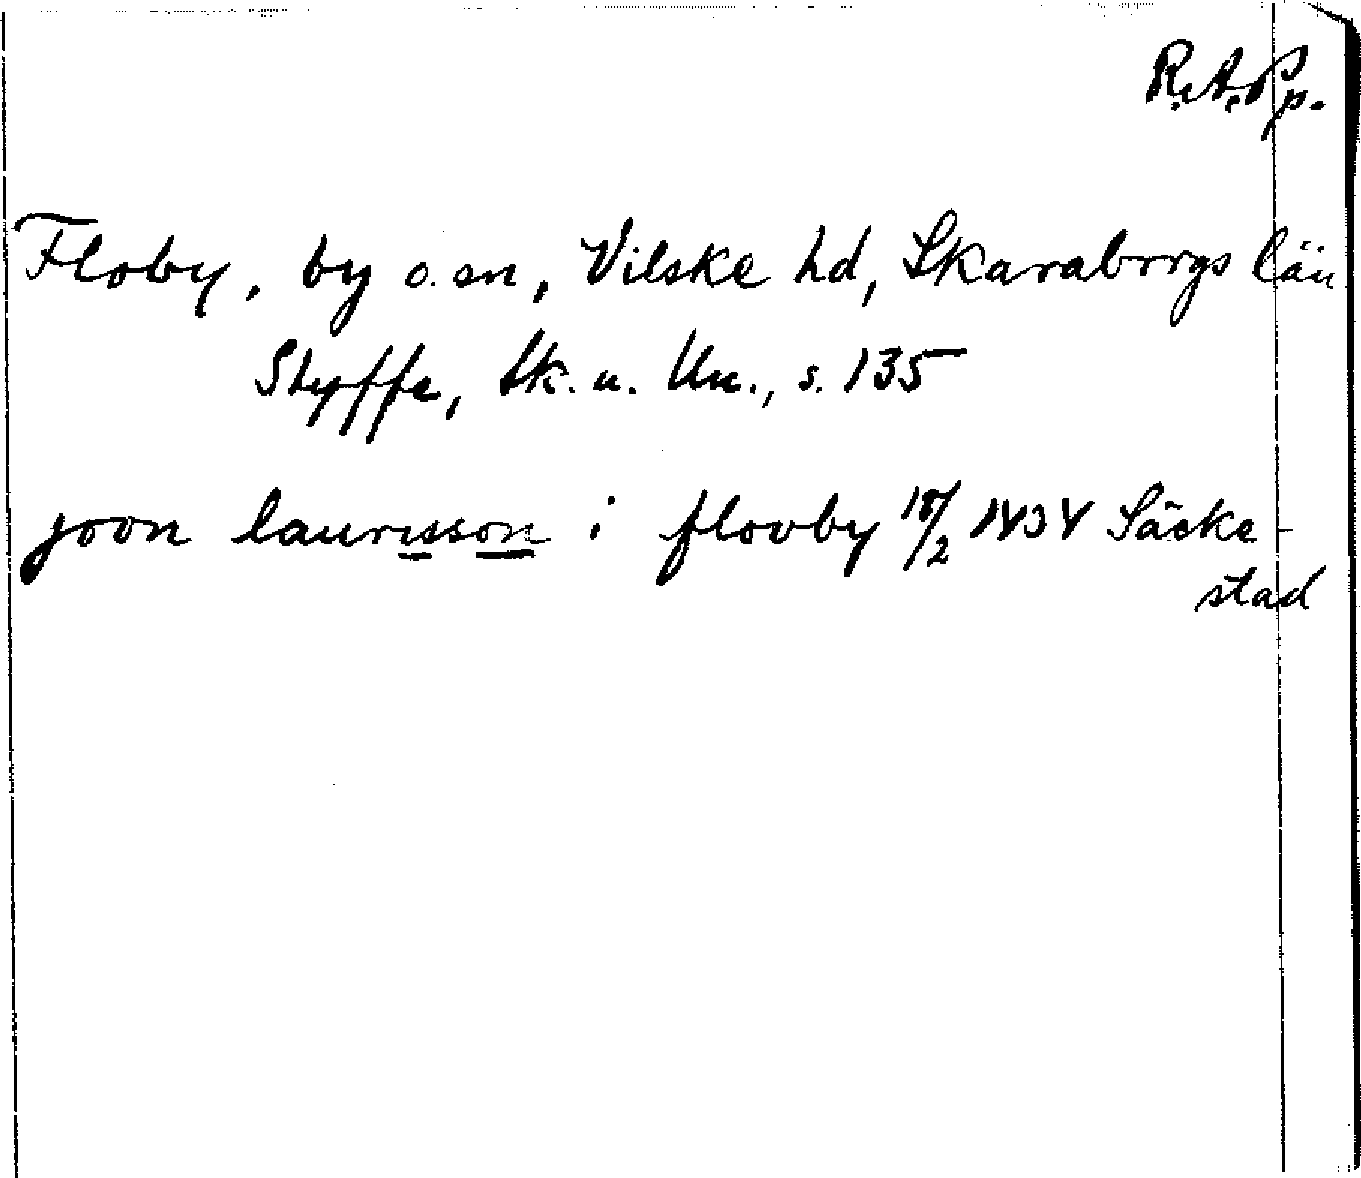 R.A.Pp.
Floby, by o. sn, Vilske hd, Skaraborgs län
Styffe, Sk. u. Un., s. 135
joon laurisson i flooby 18/2 1434 Säcke-
stad